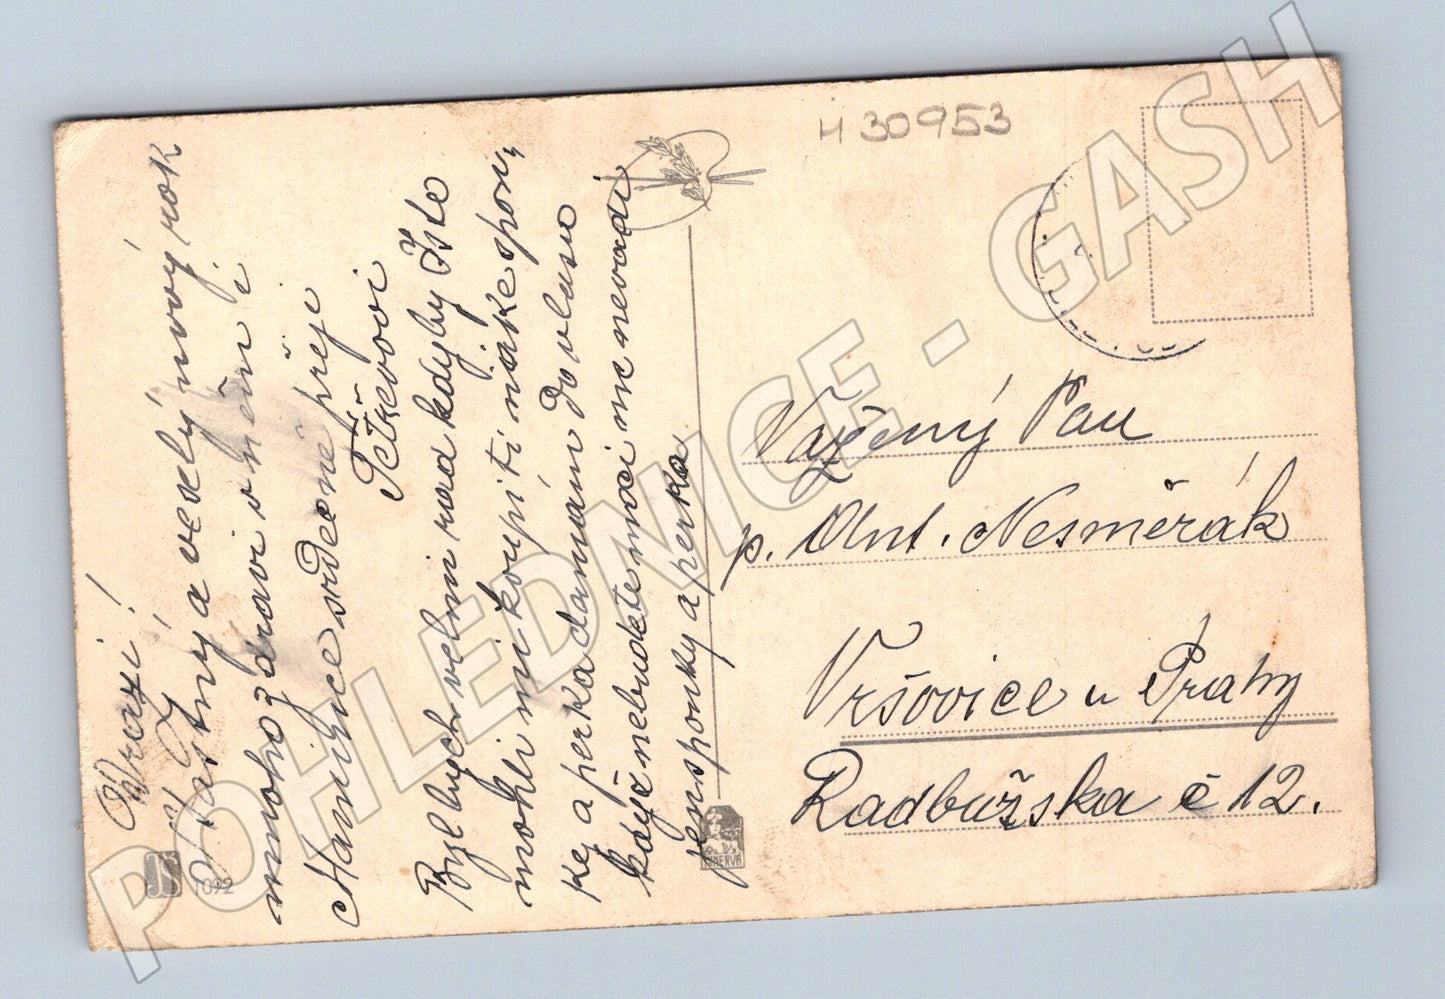 H 30953
Drazí!
Šťastný a veselý nový rok
mnoho zdraví
srdečně přeji
Byl bych velmi rad kdyby jste
mohli mi koupiti niáké spon,
ky a perka damám do vlasu
když nebudete moci nic nevadi
jen sponky a perka
1092
MINERVA
Vážený Pan
p. Ant. Nesměrák
Vršovice u Prahy
Radbuzska č 12.
POHLEDNICE - GASH